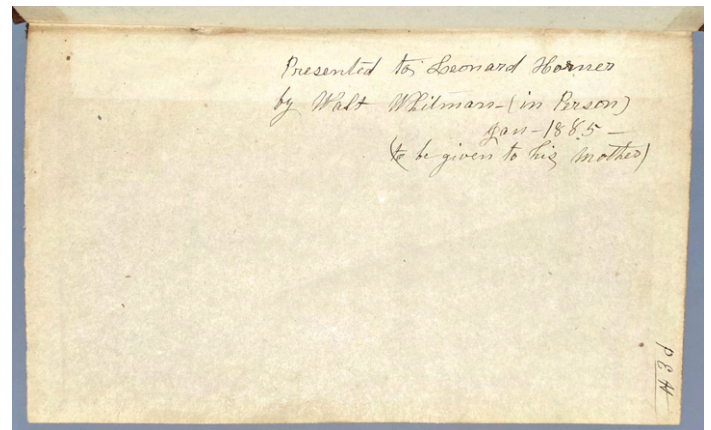 Presented to Leonard Horner
by Walt Whitman - (in Person)
Jan - 1885 -
(to be given to his mother)
P E H